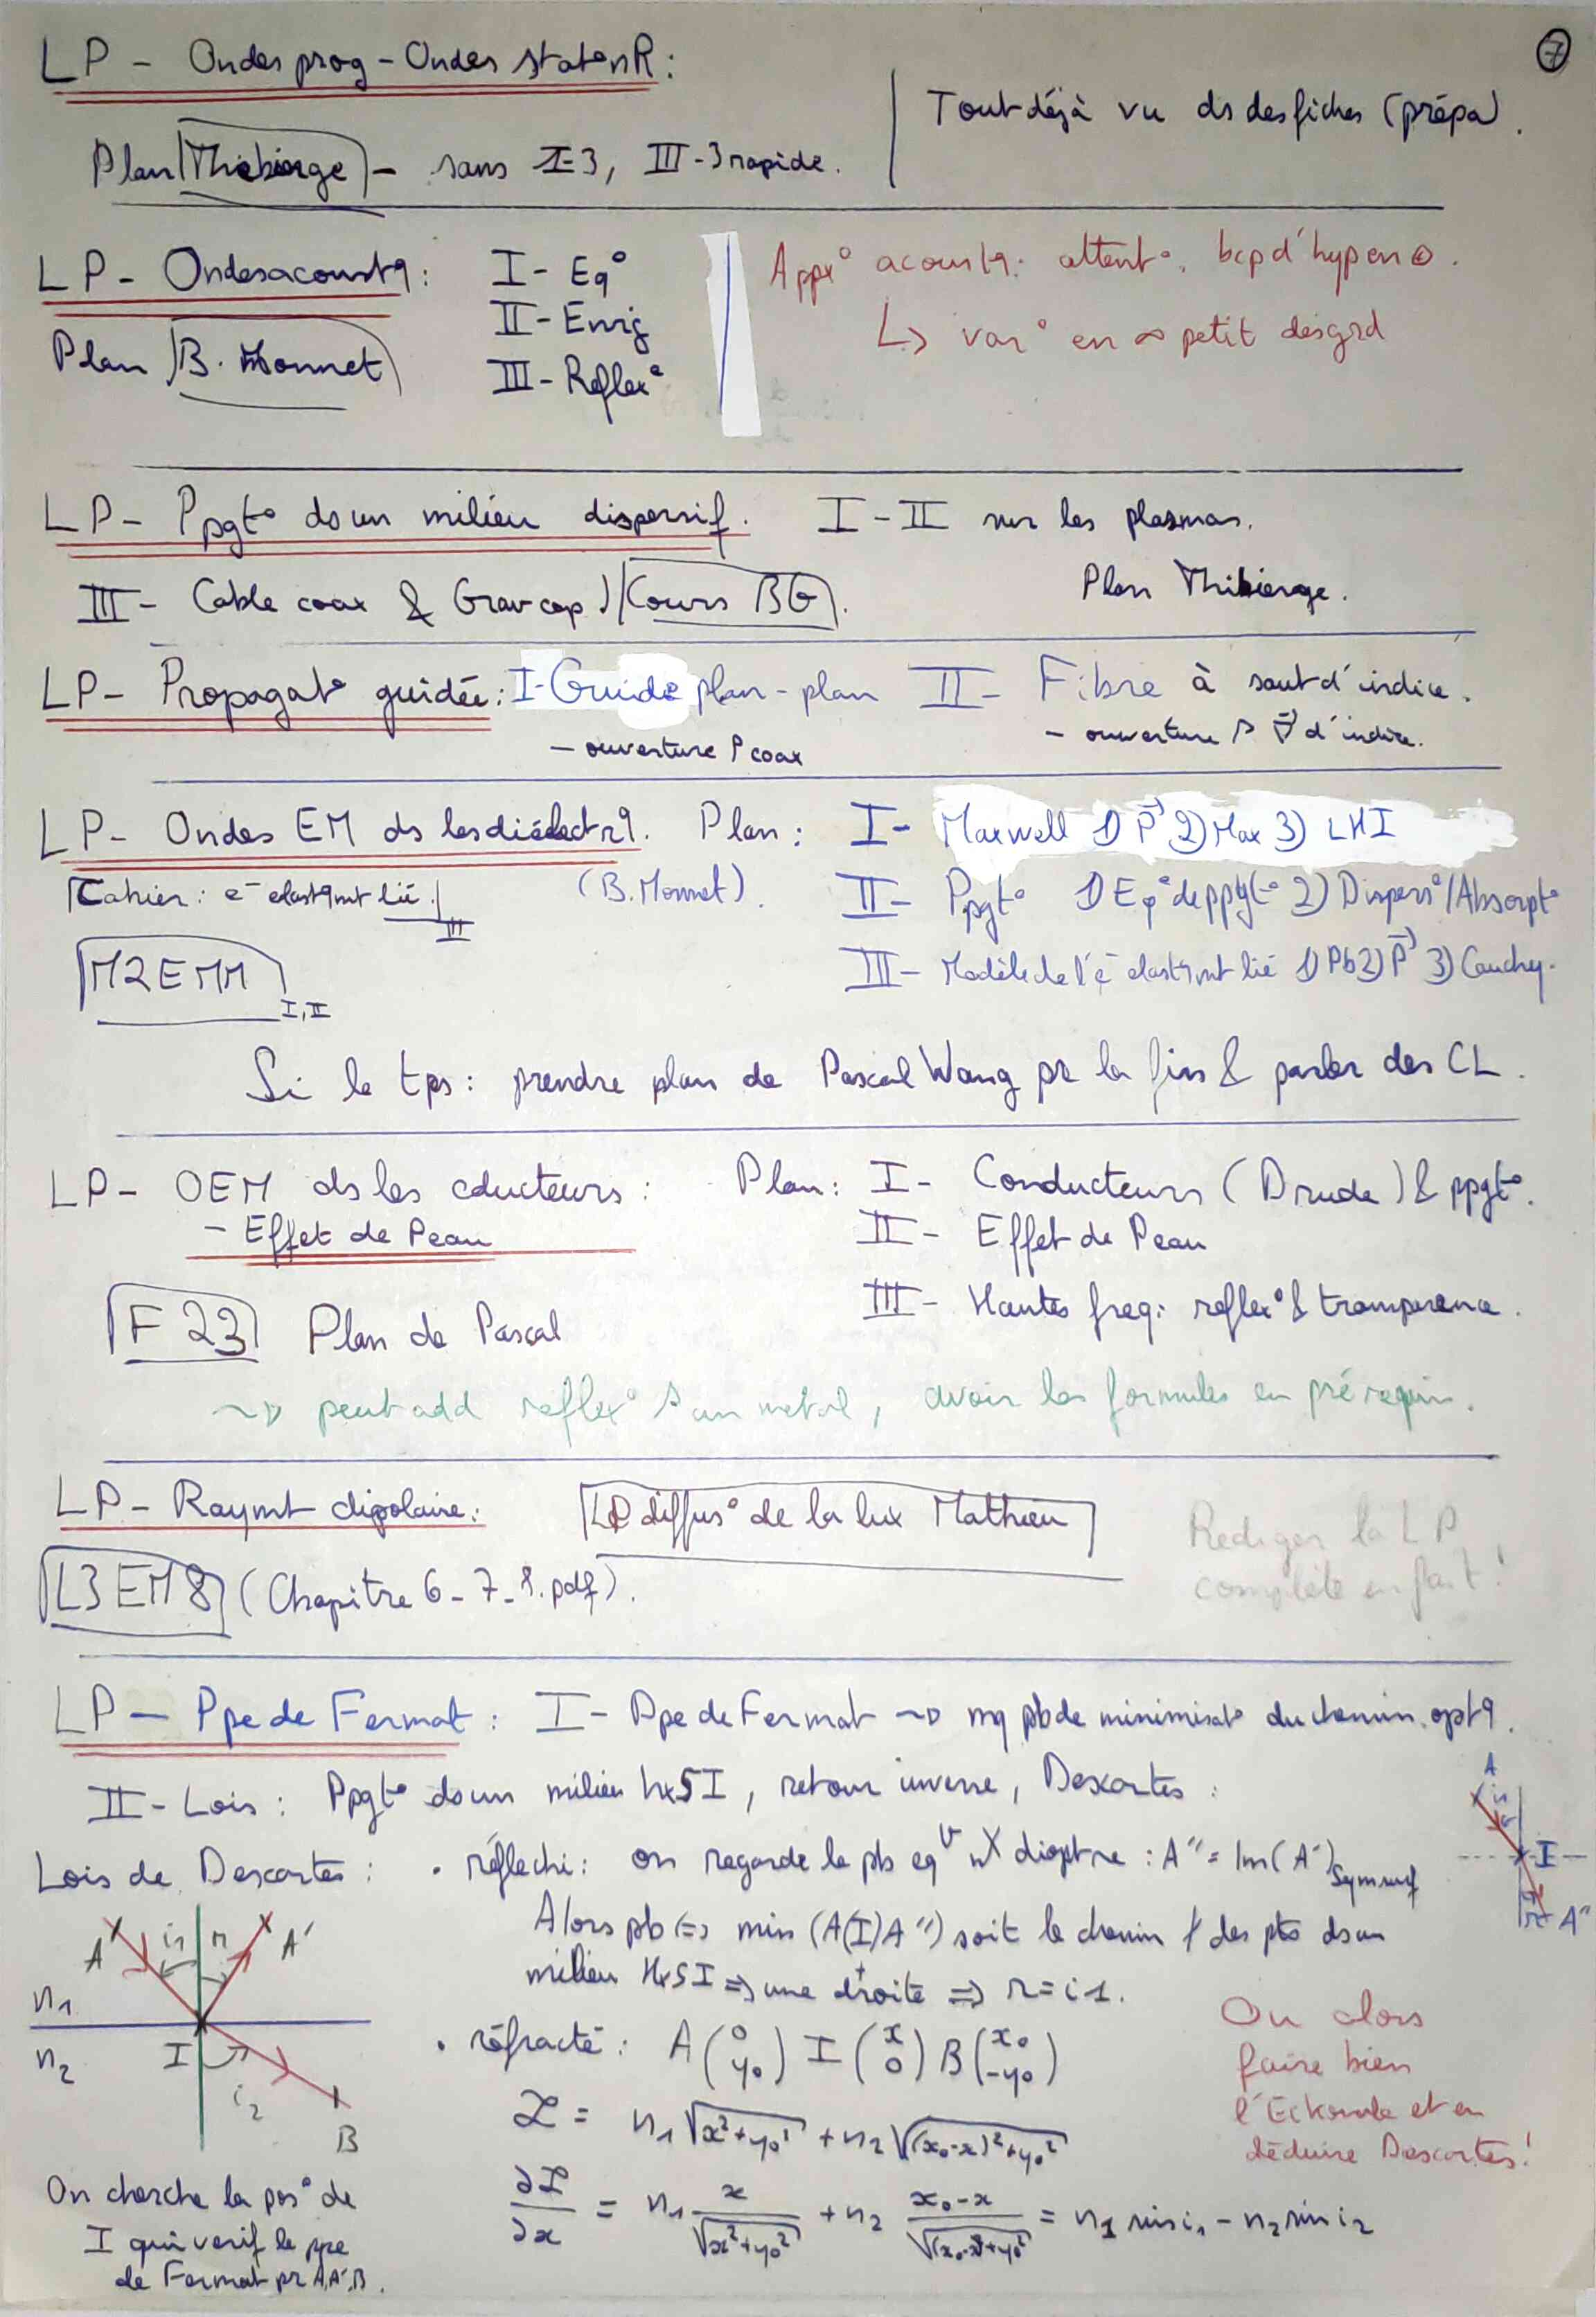 7
LP - Ondes prog - Ondes stat° nR :
Plan Thibierge - sans I-3, III-3 rapide.
Tout déjà vu ds des fiches (prépa).
LP - Ondes acoustq :
Plan B. Monnet
I - Eq°
II - Energ
III - Reflex°
Appx° acoustq : attent°, bcp d'hyp en ⊕.
↳ var° en ∞ petit des grd
LP - Ppgt° ds un milieu dispersif. I - II sur les plasmas.
III - Cable coax & Grav cap Cours BG.
Plan Thibierge.
LP - Propagat° guidée : I - Guide plan - plan II - Fibre à saut d'indice.
- ouverture coax
- ouverture ∇ d'indice.
LP - Ondes EM ds les diélectrq. Plan : I - Maxwell 1) P 2) Max 3) LHI
Cahier : e⁻ elastqmt lié. III
(B. Monnet).
II - Ppgt° 1) Eq° de ppgt° 2) Dispers° / Absorpt°
M2EMM I, II
III - Modèle de l'e⁻ elastqmt lié 1) Pb 2) P 3) Cauchy.
Si le tps : prendre plan de Pascal Wang pr la fin & parler des CL.
LP - OEM ds les cducteurs : Plan : I - Conducteurs (Drude) & ppgt°.
- Effet de Peau
II - Effet de Peau
III - Hautes freq : reflex° & transparence.
F 23 Plan de Pascal
⇝ peut add reflex° s un métal, avoir les formules en prérequis.
LP - Raymt dipolaire : LP diffus° de la lux Mathieu
L3 EM 8 (Chapitre 6 - 7 - 8.pdf).
Rediger la LP
complète en fait !
LP - Ppe de Fermat : I - Ppe de Fermat ⇝ mq pb de minimisat° du chemin optq.
II - Lois : Ppgt° ds un milieu HxSI, retour inverse, Descartes :
Lois de Descartes :
• réflechi : on regarde le pb eqᵛ dioptre : A'' = Im(A')
Alors pb ⇔ min (A(I)A'') soit le chemin des pts ds un
milieu HxSI ⇒ une droite ⇒ r = i1.
A i1 r A'
n1
n2
I
i2
B
A
I
A''
• réfracté : A (0 y₀) I (x 0) B (x₀ -y₀)
ℒ = n₁ √(x²+y₀²) + n₂ √((x₀-x)²+y₀²)
∂ℒ/∂x = n₁ x/√(x²+y₀²) + n₂ (x₀-x)/√((x₀-x)²+y₀²) = n₁ sin i₁ - n₂ sin i₂
Ou alors
faire bien
l'Eikonale et en
déduire Descartes !
On cherche la pos° de
I qui verif le ppe
de Fermat pr A, A', B.